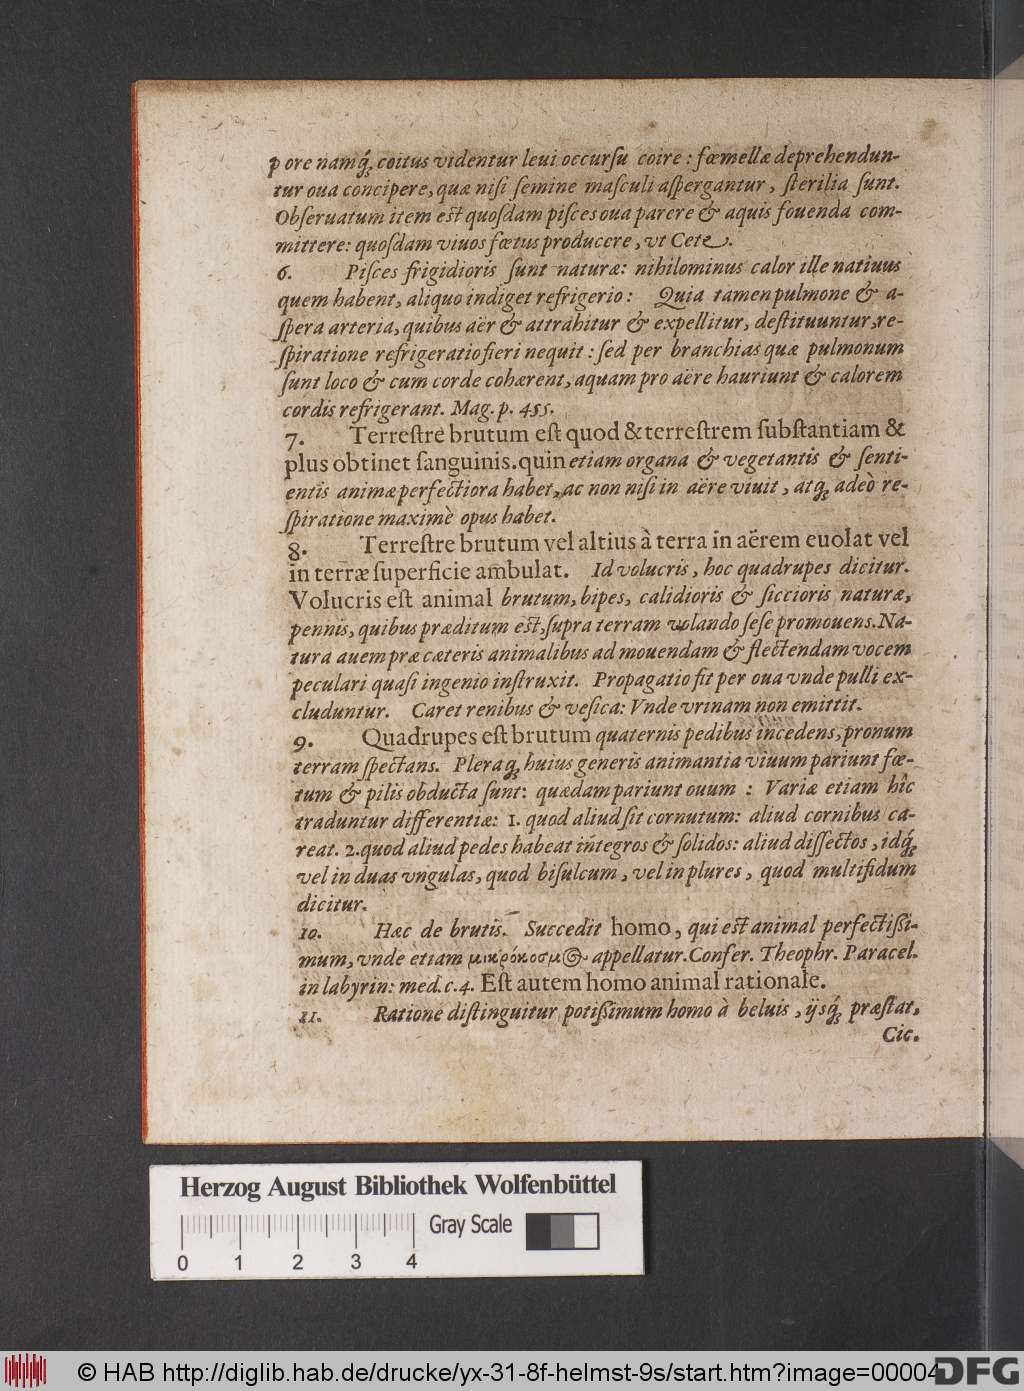 p ore namq́ꝫ coitus videntur leui occurſu coire : fœmellæ deprehendun-
tur oua concipere, quæ niſi ſemine maſculi aſpergantur, ſterilia ſunt.
Obſeruatum item est quoſdam piſces oua parere & aquis fouenda com-
mittere: quoſdam viuos fœtus producere, vt Cete.
6. Piſces frigidioris ſunt naturæ: nihilominus calor ille natiuus
quem habent, aliquo indiget refrigerio: Quia tamen pulmone & a-
ſpera arteria, quibus aër & attrahitur & expellitur, deſtituuntur, re-
ſpiratione refrigeratio fieri nequit : ſed per branchias quæ pulmonum
ſunt loco & cum corde cohærent, aquam pro aëre hauriunt & calorem
cordis refrigerant. Mag. p. 455.
7. Terreſtre brutum eſt quod & terreſtrem ſubſtantiam &
plus obtinet ſanguinis. quin etiam organa & vegetantis & ſenti-
entis animæ perfectiora habet, ac non niſi in aëre viuit, atqꝫ adeò re-
ſpiratione maximè opus habet.
8. Terreſtre brutum vel altius à terra in aërem euolat vel
in terræ ſuperficie ambulat. Id volucris, hoc quadrupes dicitur.
Volucris eſt animal brutum, bipes, calidioris & ſiccioris naturæ,
pennis, quibus præditum est, ſupra terram volando ſeſe promouens. Na-
tura auem præ cæteris animalibus ad mouendam & flectendam vocem
peculari quaſi ingenio inſtruxit. Propagatio fit per oua vnde pulli ex-
cluduntur. Caret renibus & veſica: Vnde vrinam non emittit.
9. Quadrupes eſt brutum quaternis pedibus incedens, pronum
terram ſpectans. Pleraqꝫ huius generis animantia viuum pariunt fœ-
tum & pilis obducta ſunt: quædam pariunt ouum : Variæ etiam hîc
traduntur differentiæ: 1. quod aliud ſit cornutum: aliud cornibus ca-
reat. 2. quod aliud pedes habeat integros & ſolidos: aliud diſſectos, idq́ꝫ
vel in duas vngulas, quod biſulcum, vel in plures, quod multifidum
dicitur.
10. Hæc de brutis. Succedit homo, qui est animal perfectiſſi-
mum, vnde etiam μικρόκοσμος appellatur. Confer. Theophr. Paracel.
in labyrin: med. c. 4. Eſt autem homo animal rationale.
11. Ratione diſtinguitur potiſſimum homo à beluis, ijsq́ꝫ præſtat,
Cic.
Herzog August Bibliothek Wolfenbüttel
Gray Scale
0 1 2 3 4
© HAB http://diglib.hab.de/drucke/yx-31-8f-helmst-9s/start.htm?image=00004
DFG